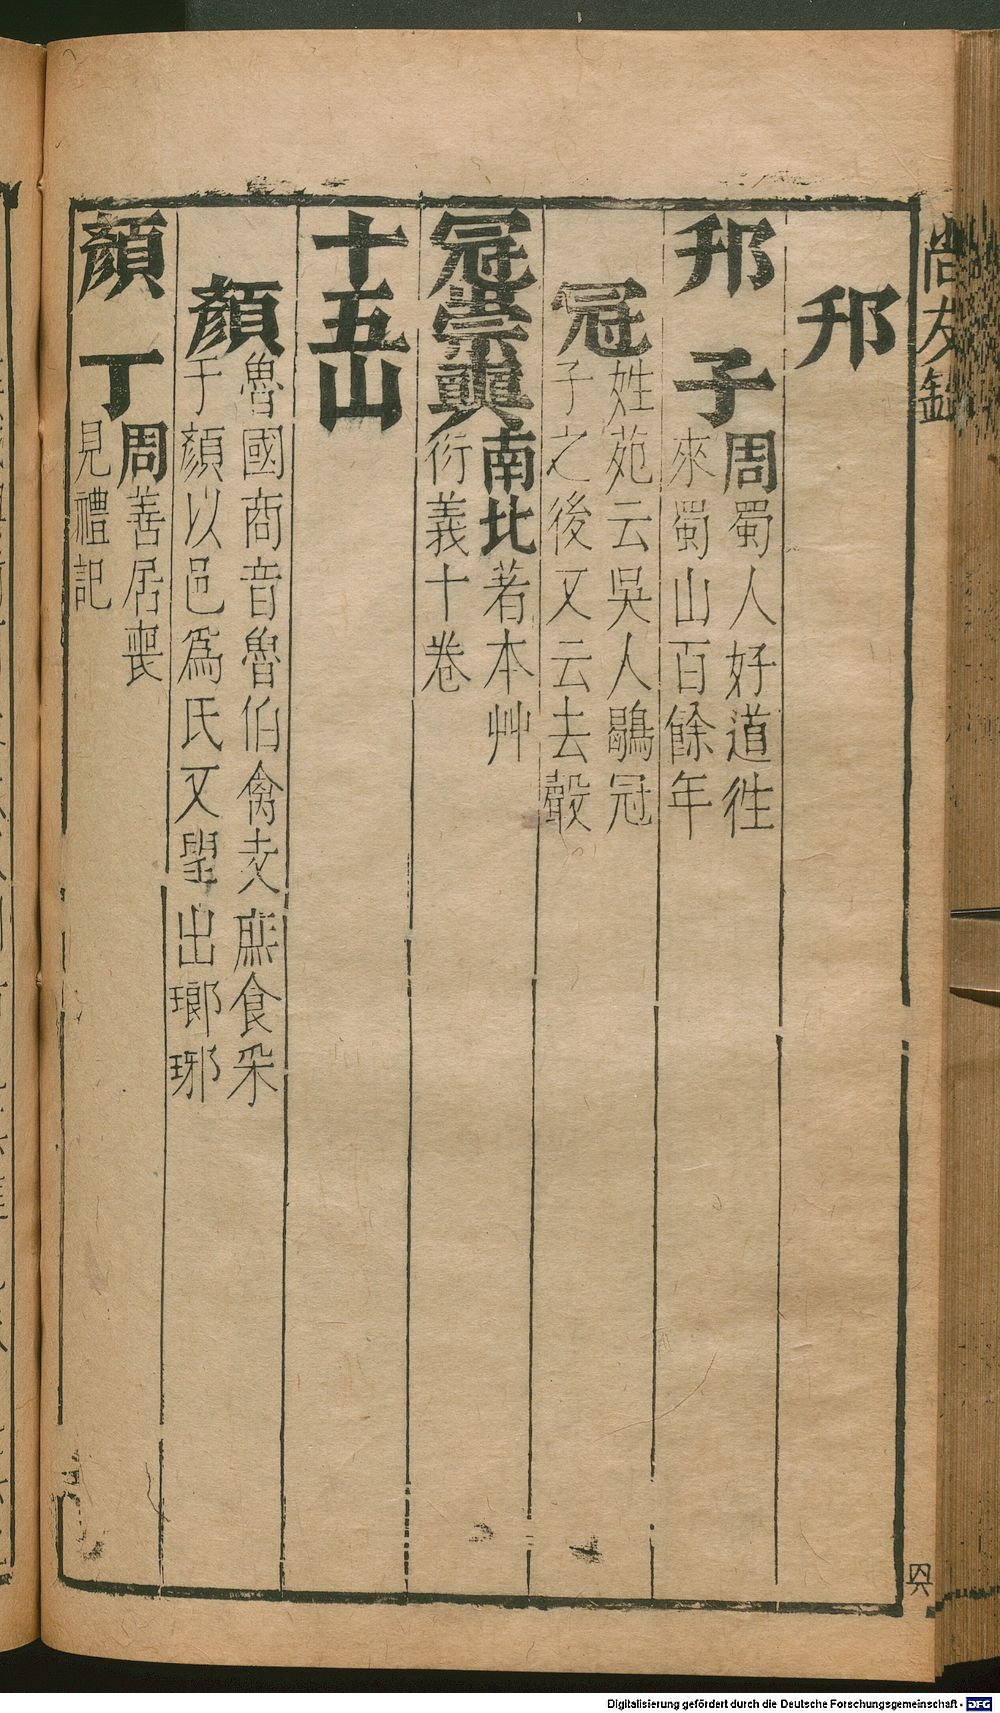 尚友錄
邗
邗子
周蜀人好道徃
來蜀山百餘年
冠
姓苑云吳人鶡冠
子之後又云去聲
冠崇奭
南北著本艸
衍義十卷
十五山
顏
魯國商音魯伯禽支庶食采
于顏以邑爲氏又望出瑯琊
顏丁
周善居喪
見禮記
Digitalisierung gefördert durch die Deutsche Forschungsgemeinschaft - DFG